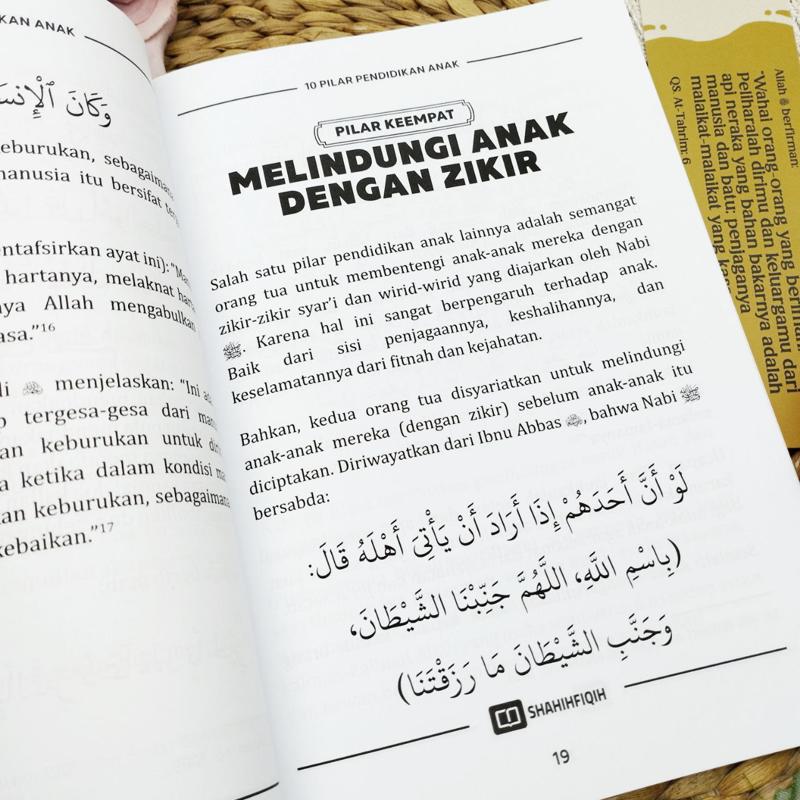 KAN ANAK
وَكَانَ ٱلْإِنسَ
keburukan, sebagaimana
manusia itu bersifat
entafsirkan ayat ini):
hartanya, melaknat
nya Allah mengabulkan
asa."16
di menjelaskan: "Ini
tergesa-gesa dari
an keburukan untuk
a ketika dalam kondisi
an keburukan, sebagaimana
kebaikan."17
10 PILAR PENDIDIKAN ANAK
PILAR KEEMPAT
MELINDUNGI ANAK
DENGAN ZIKIR
Salah satu pilar pendidikan anak lainnya adalah semangat
orang tua untuk membentengi anak-anak mereka dengan
zikir-zikir syar'i dan wirid-wirid yang diajarkan oleh Nabi
ﷺ. Karena hal ini sangat berpengaruh terhadap anak.
Baik dari sisi penjagaannya, keshalihannya, dan
keselamatannya dari fitnah dan kejahatan.
Bahkan, kedua orang tua disyariatkan untuk melindungi
anak-anak mereka (dengan zikir) sebelum anak-anak itu
diciptakan. Diriwayatkan dari Ibnu Abbas , bahwa Nabi ﷺ
bersabda:
لَوْ أَنَّ أَحَدَهُمْ إِذَا أَرَادَ أَنْ يَأْتِيَ أَهْلَهُ قَالَ:
(بِاسْمِ اللَّهِ، اللَّهُمَّ جَنِّبْنَا الشَّيْطَانَ،
وَجَنِّبِ الشَّيْطَانَ مَا رَزَقْتَنَا)
SHAHIHFIQIH
19
Allah berfirman:
"Wahai orang-orang yang beriman!
Peliharalah dirimu dan keluargamu dari
api neraka yang bahan bakarnya adalah
manusia dan batu; penjaganya
malaikat-malaikat yang
QS. At-Tahrim: 6